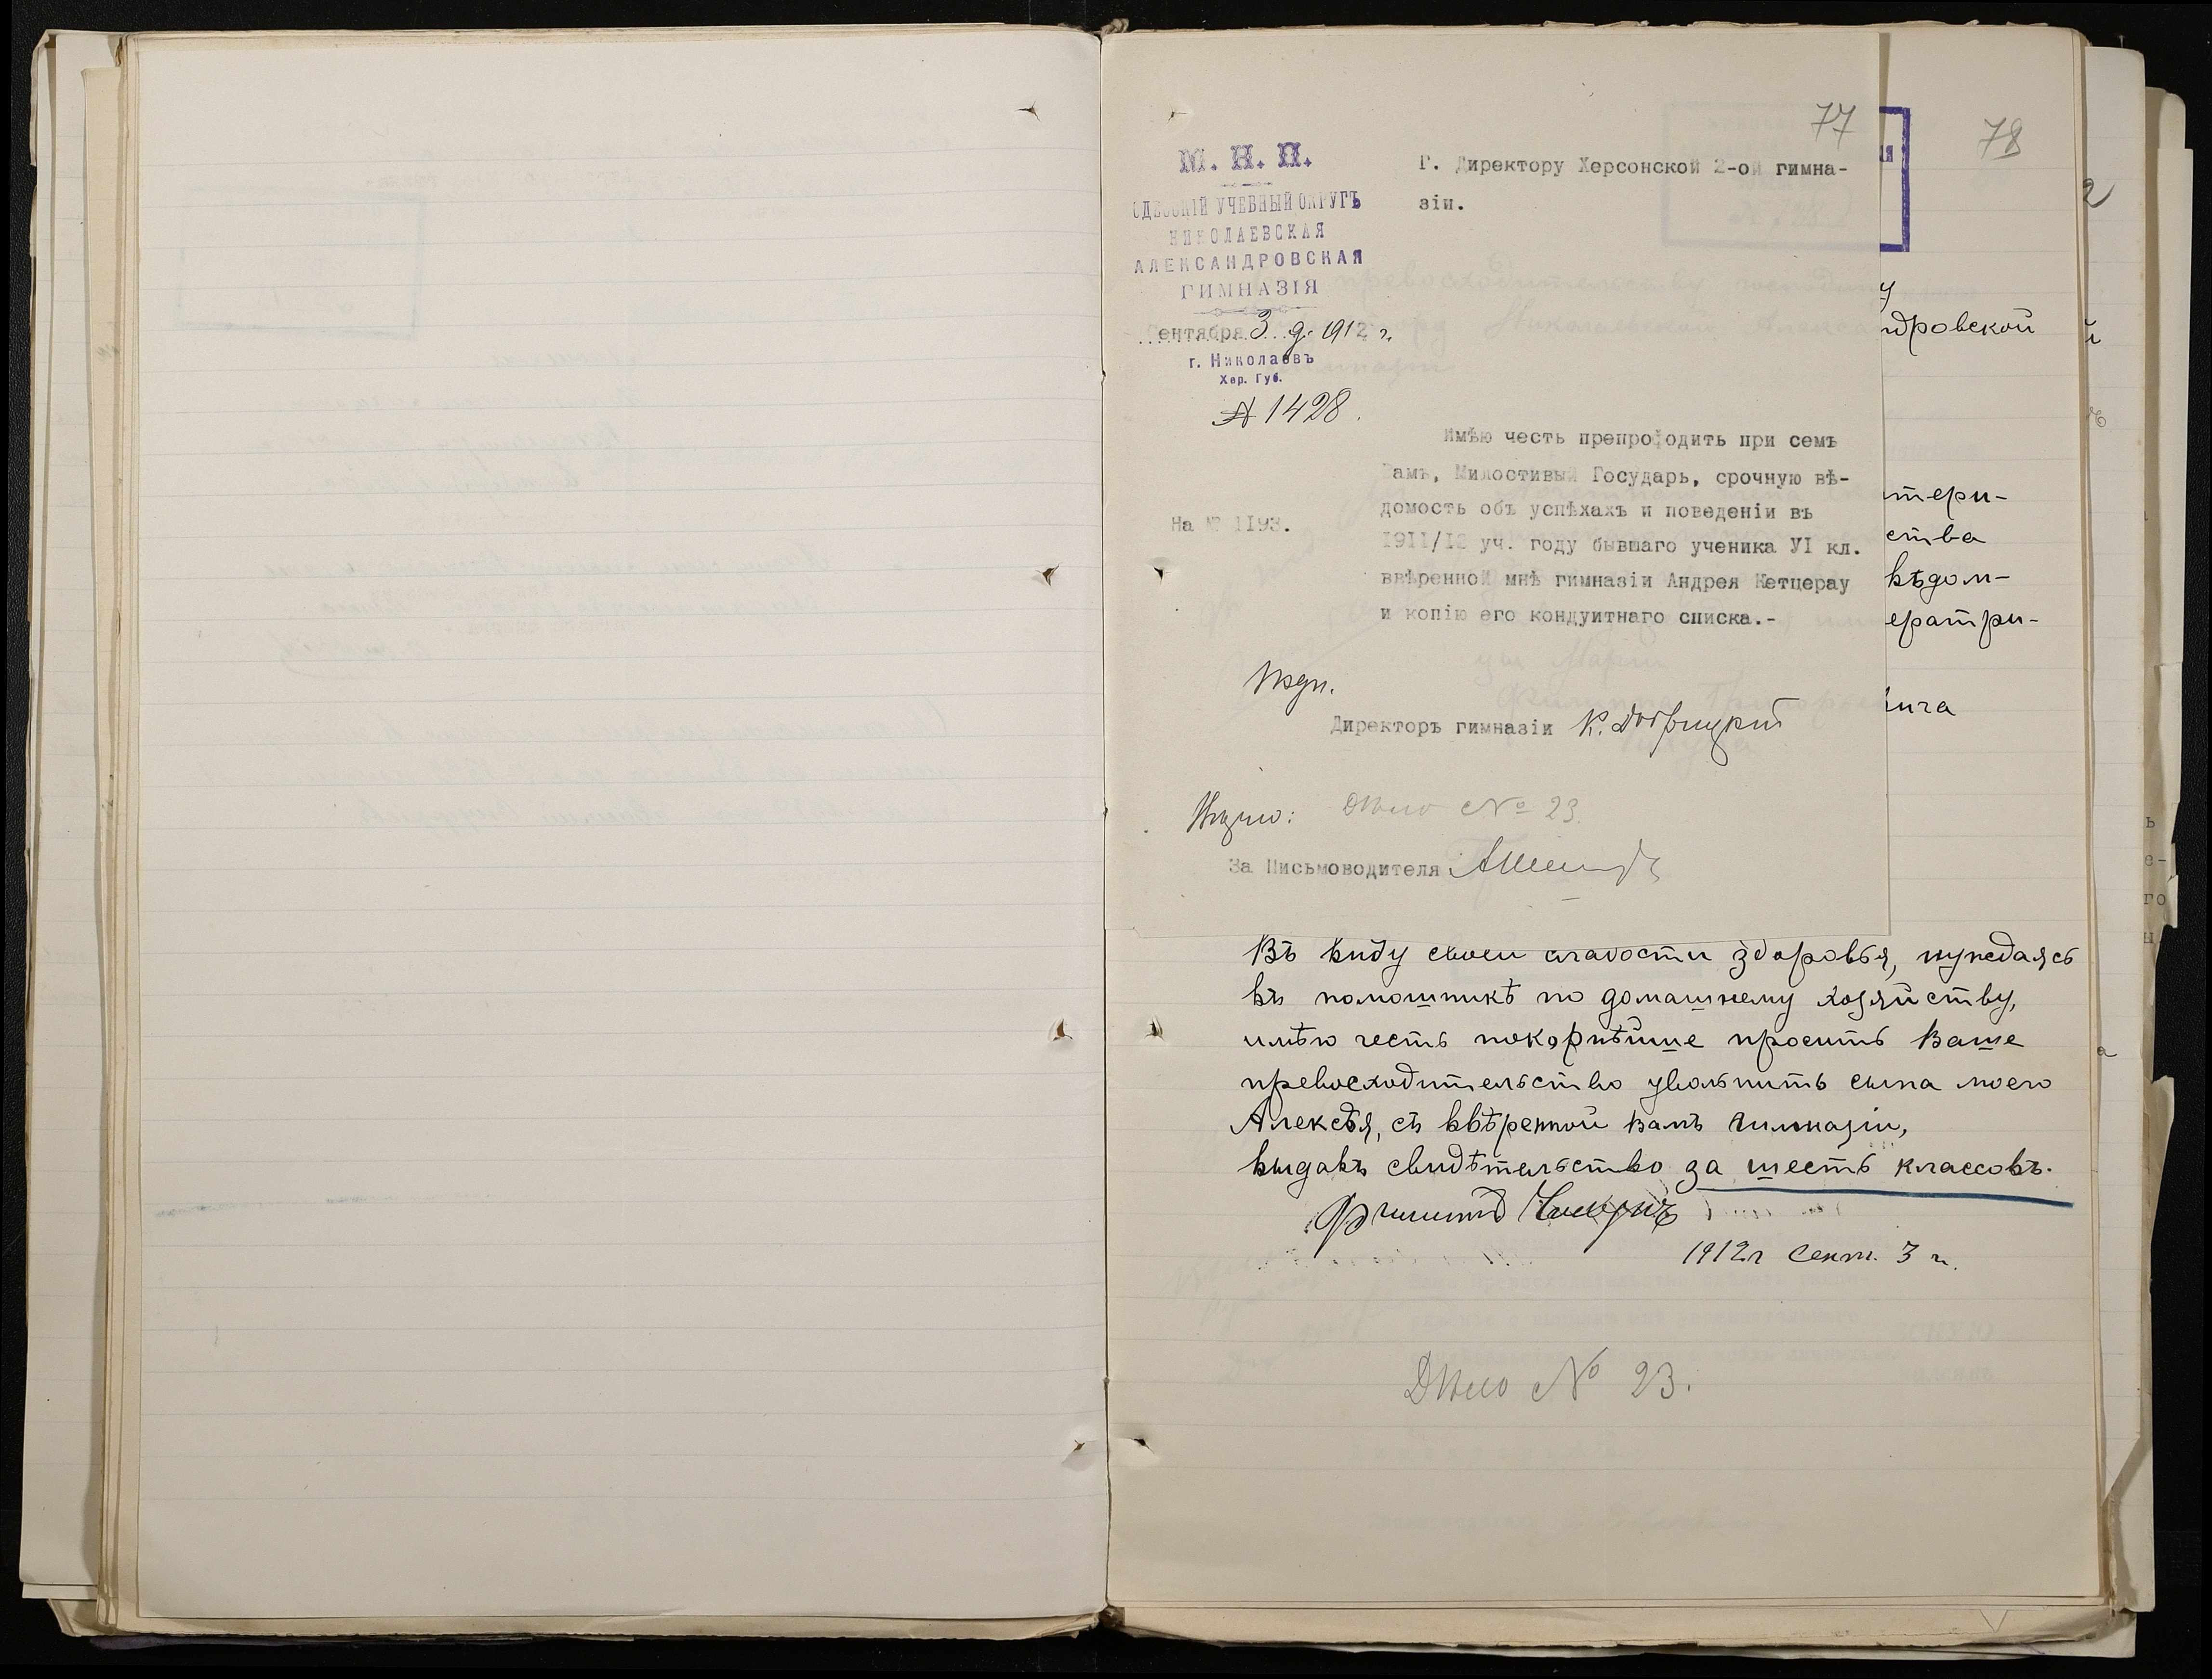 77
М. Н. П.
ОДЕССКІЙ УЧЕБНЫЙ ОКРУГЪ
НИКОЛАЕВСКАЯ
АЛЕКСАНДРОВСКАЯ
ГИМНАЗІЯ
Сентября 3 д. 1912 г.
г. Николаевъ
Хер. Губ.
№ 1428.
Г. Директору Херсонской 2-ой гимна-
зіи.
На № 1193.
Имѣю честь препроводить при семъ
Вамъ, Милостивый Государь, срочную вѣ-
домость объ успѣхахъ и поведеніи въ
1911/12 уч. году бывшаго ученика VI кл.
ввѣренной мнѣ гимназіи Андрея Кетцерау
и копію его кондуитнаго списка.-
Директоръ гимназіи
Дѣло № 23.
За Письмоводителя
78
у
ндровской
тери-
ства
вѣдом-
ератри-
вича
Въ виду своей слабости здоровья, нуждаясь
въ помошникѣ по домашнему хозяйству,
имѣю честь покорнѣйше просить Ваше
превосходительство уволнить сына моего
Алексѣя, съ ввѣренной вамъ гимназіи,
выдавъ свидѣтельство за шесть классовъ.
1912 г Сент. 3 г.
Дѣло № 23.